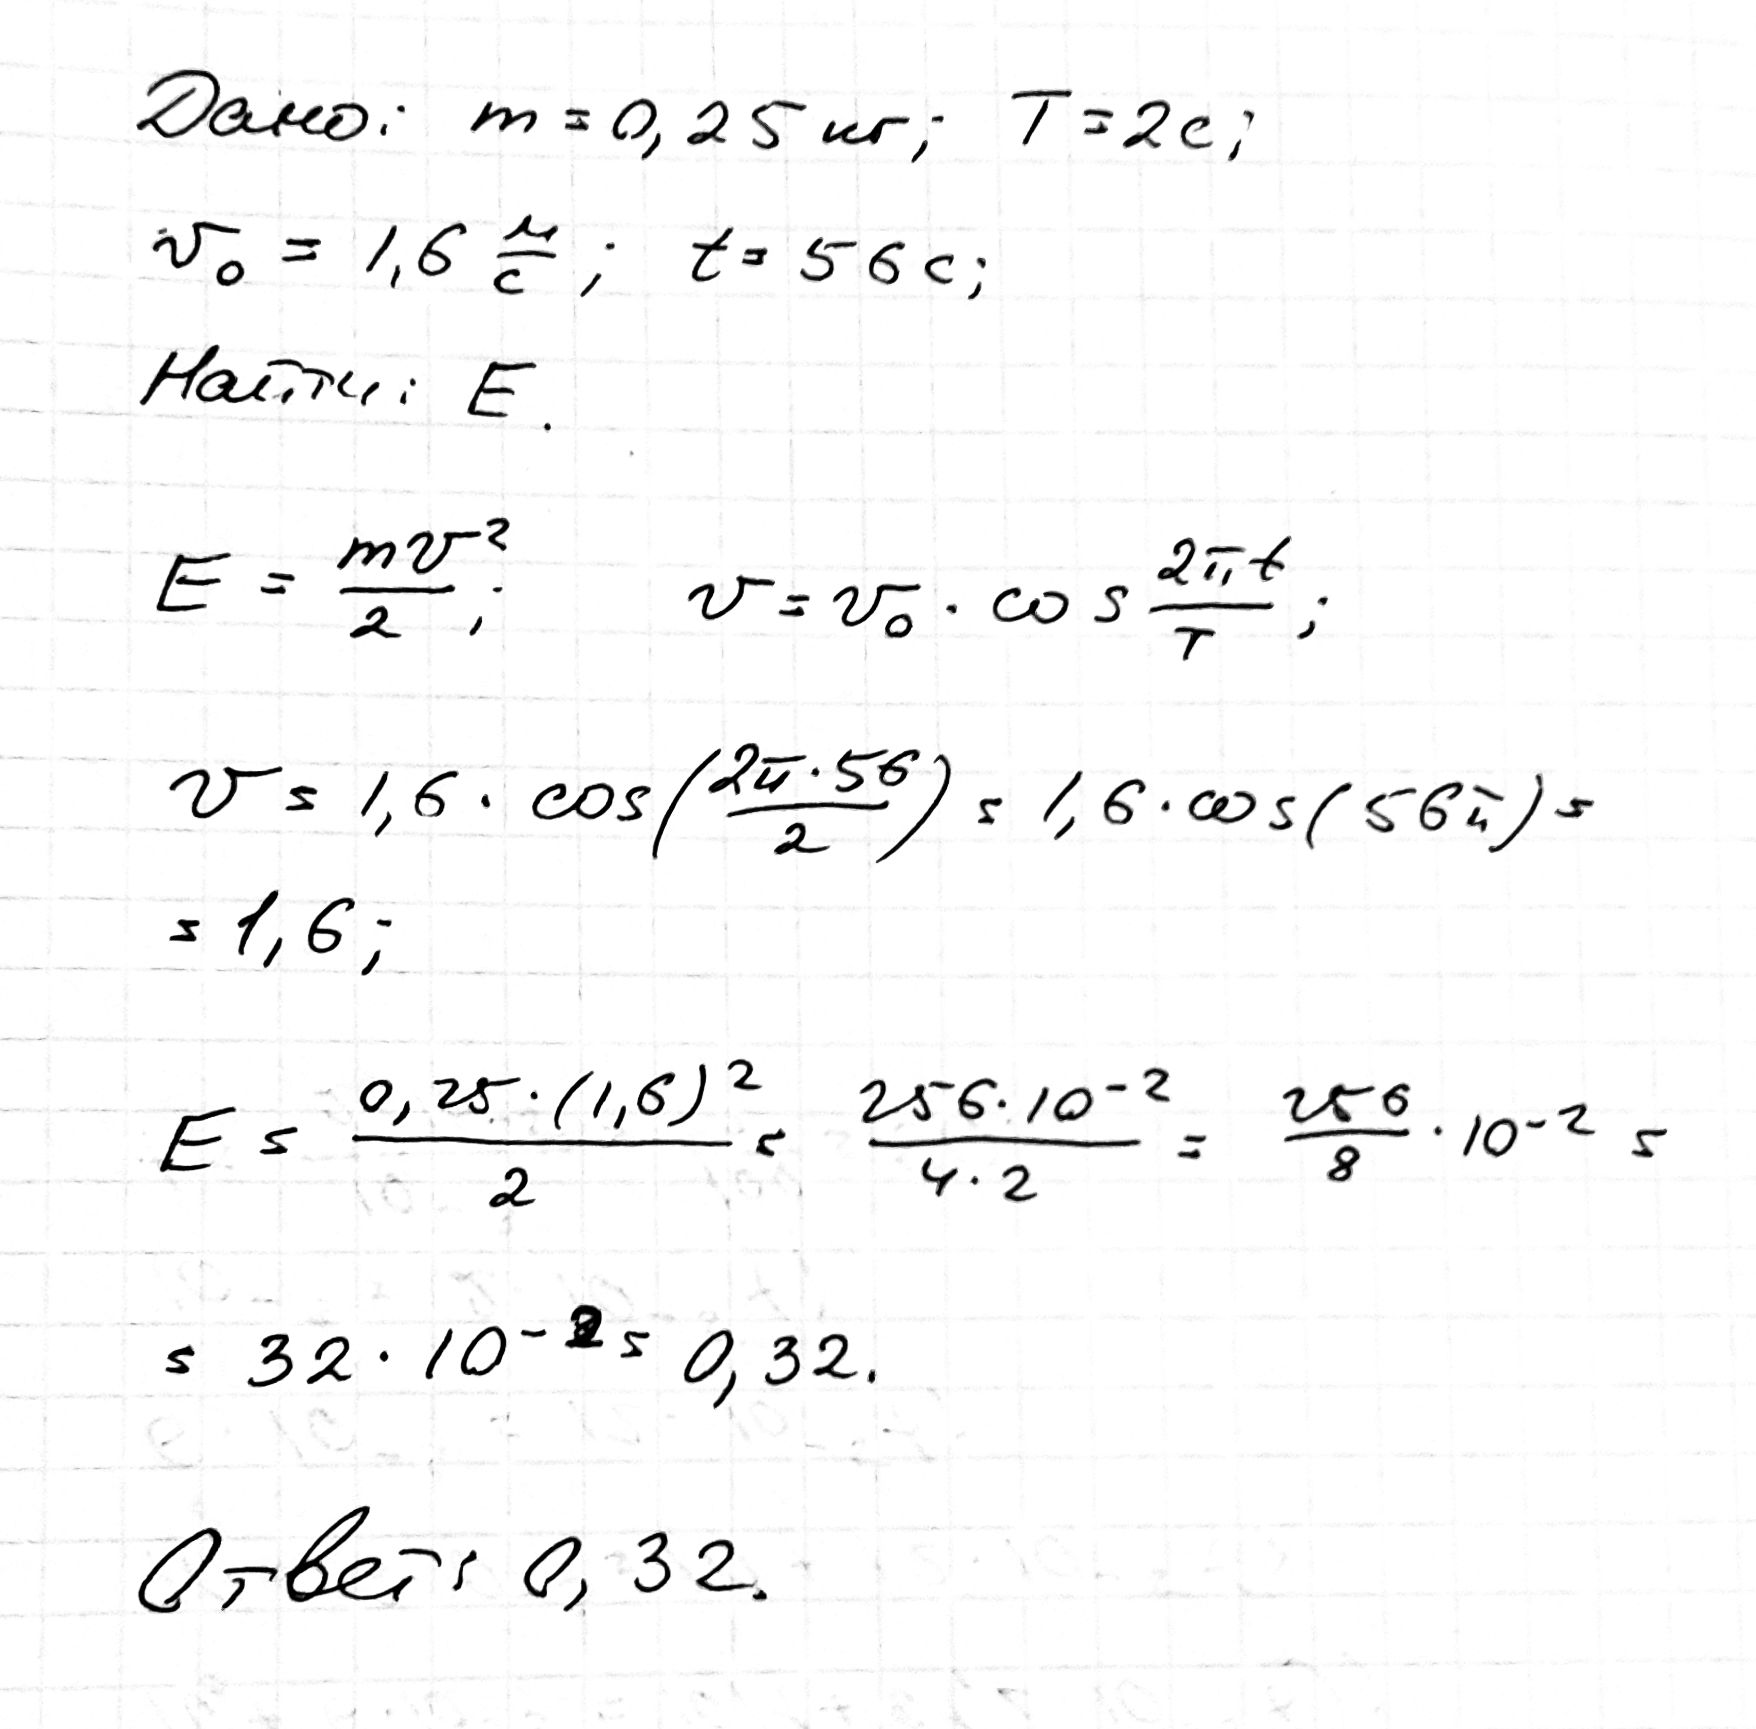 Дано: m = 0,25 кг; T = 2 с;
v₀ = 1,6 м/с; t = 56 с;
Найти: E.
E = mv²/2; v = v₀ · cos 2πt/T;
v = 1,6 · cos(2π·56/2) = 1,6 · cos(56π) =
= 1,6;
E = 0,25·(1,6)²/2 = 256·10⁻²/4·2 = 256/8 · 10⁻² =
= 32 · 10⁻² = 0,32.
Ответ: 0,32.